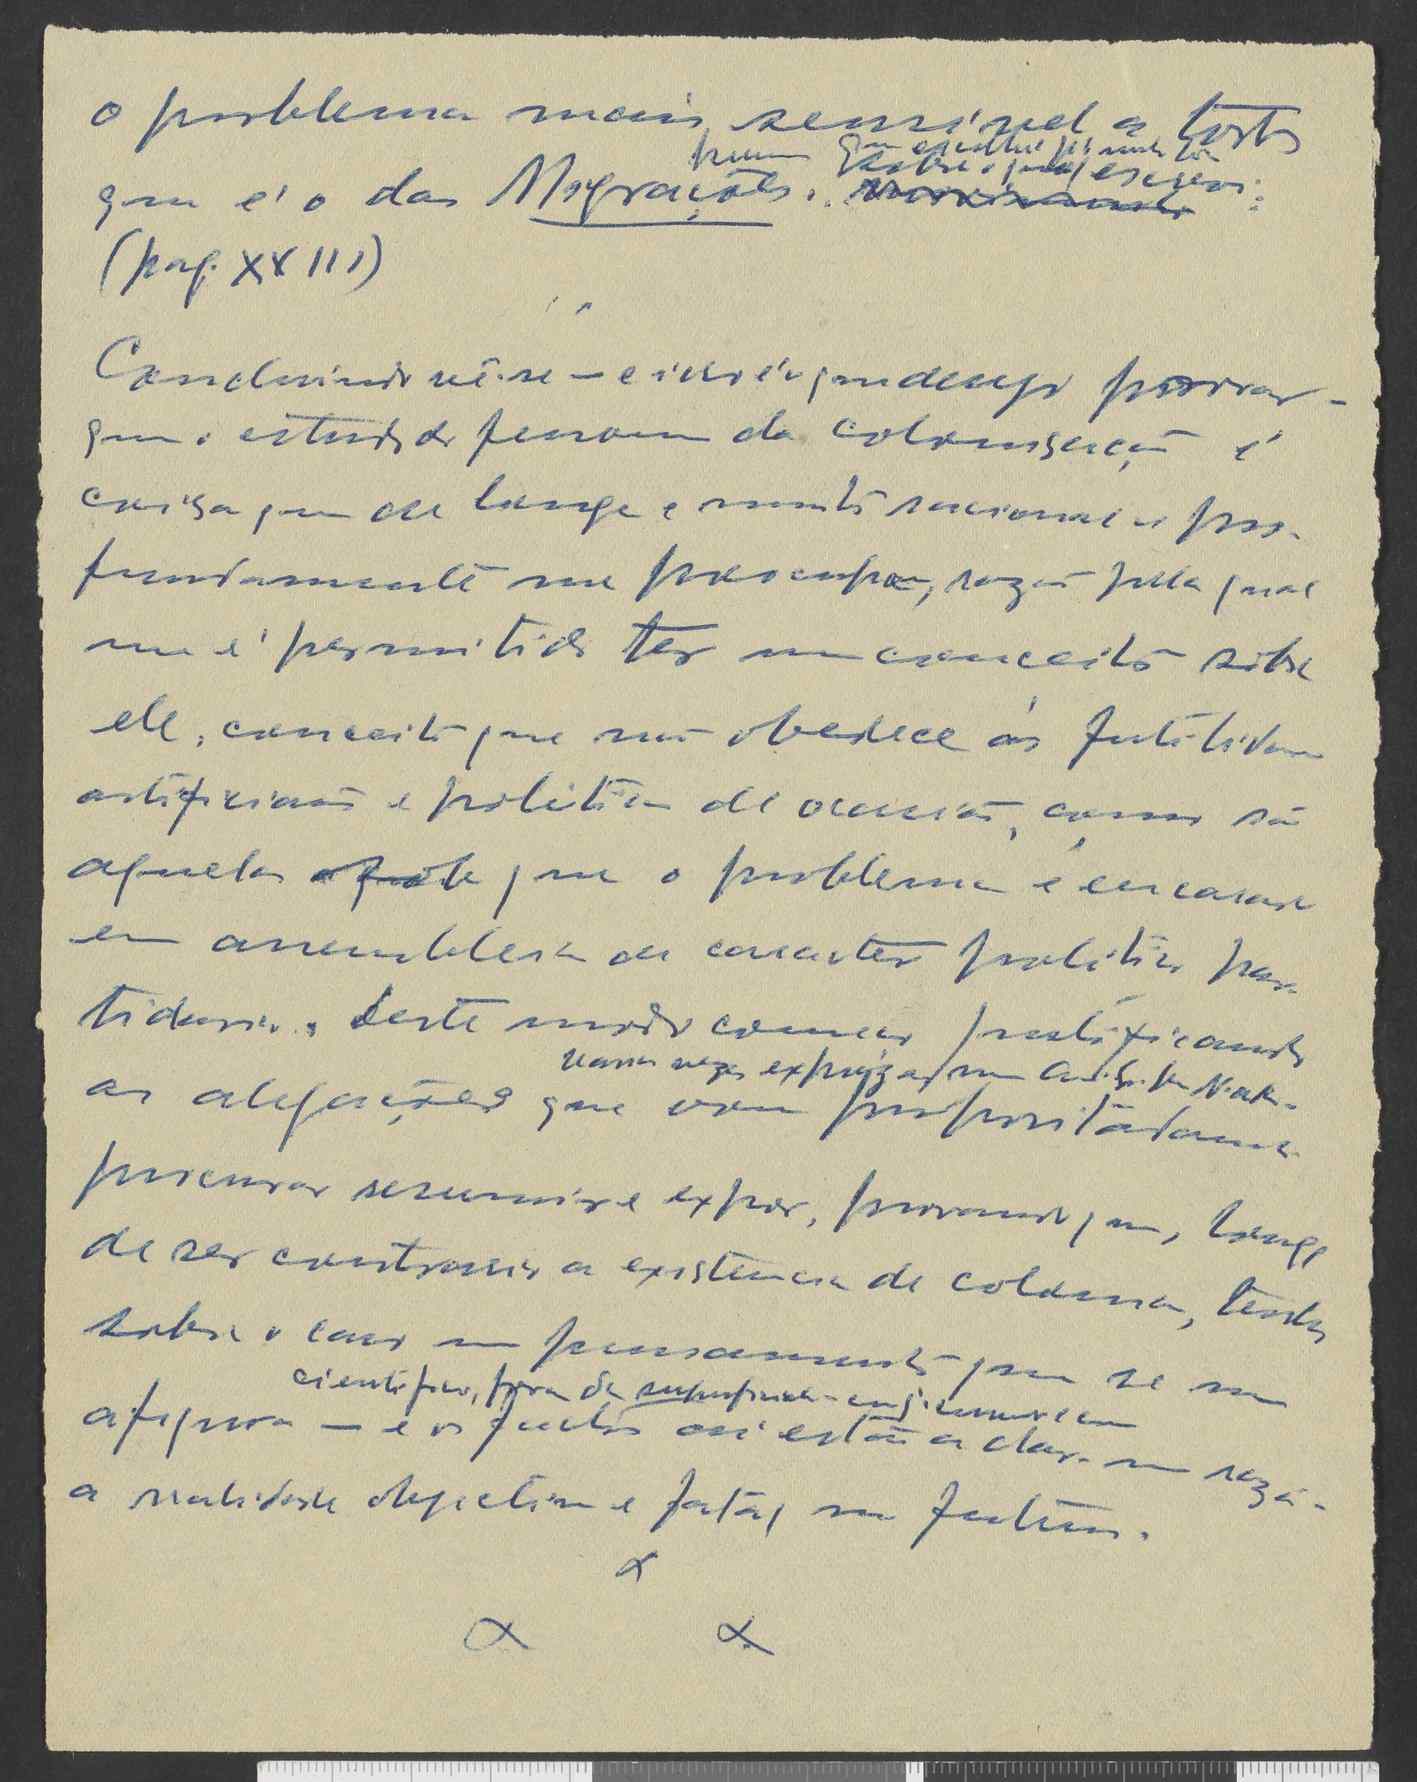 o problema mais sensível a todos
que é o das Migrações. sobre o qual escrevi:
(pag. XXIII)
Concluindo vê-se — e isso é o que desejo provar —
que o estudo do fenomeno da colonisação é
coisa que de longe e muito racional e pro-
fundamente me preocupa, razão pela qual
me é permitido ter um conceito sobre
ele, conceito que não obedece ás futilidades
artificiais e politicas de ocasião, como são
aquelas que o problema é encarado
em assembleia de caracter politico par-
tidario. Deste modo começo justificando
varias vezes expressas na A. N.
as alegações que vou propositadamente
procurar resumir e expor, provando que, longe
de ser contrario a existencia de colonia, tenho
sobre o caso um pensamento que se me
cientifico, fora da
afigura — e os factos aí estão a dar-me razão —
a realidade objectiva e fatal no futuro.
x
x x